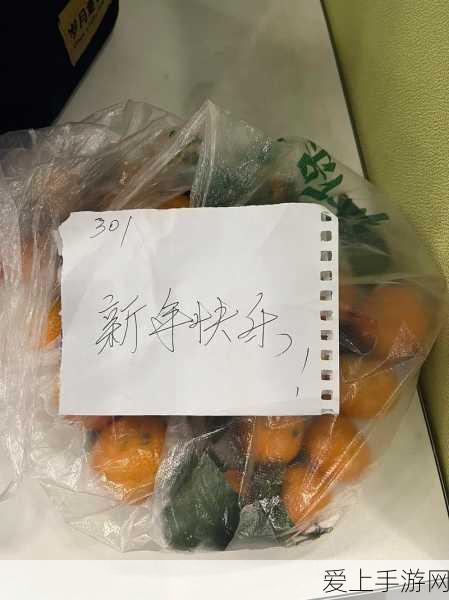 岁月
301
新年快乐
!
爱上手游网